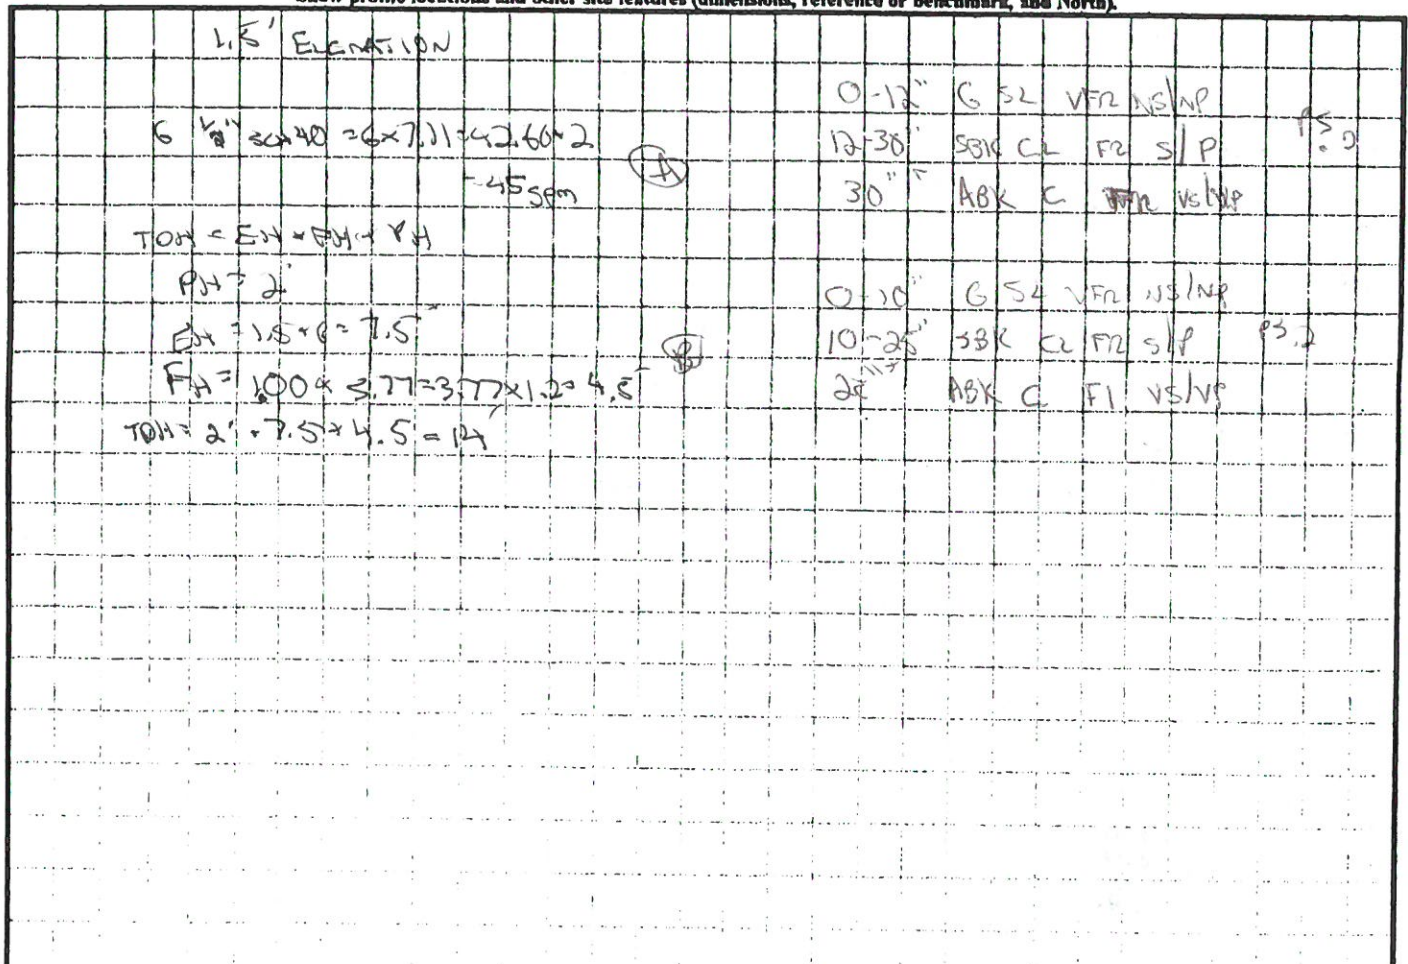 Show profile locations and other site features (dimensions, reference or benchmark, and North).
1.5' ELEVATION
6 1/2" SCH 40 = 6x7.11=42.60+2
=45 gpm
TDH = EH + FH + PH
PH = 2'
EH = 1.5+6=7.5'
FH = 1.00 x 3.77=3.77x1.2=4.5'
TDH = 2'+7.5+4.5=14'
A
0-12" G SL VFR NS/NP
12-30" SBK CL FR S/P PS.2
30"+ ABK C VS/VP
B
0-10" G SL VFR NS/NP
10-25" SBK CL FR S/P PS.2
ABK C FI VS/VP